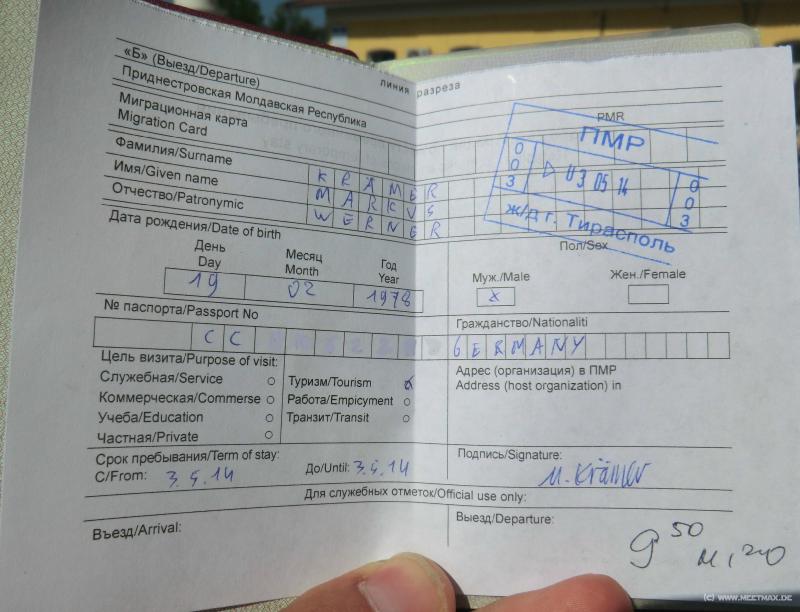 «Б» (Выезд/Departure)
линия разреза
Приднестровская Молдавская Республика
PMR
Миграционная карта
Migration Card
ПМР
003 03 05 14 003
ж/д г. Тирасполь
Фамилия/Surname KRÄMER
Имя/Given name MARKUS
Отчество/Patronymic WERNER
Дата рождения/Date of birth
Пол/Sex
День Месяц Год
Day Month Year
Муж./Male Жен./Female
19 02 1978 x
№ паспорта/Passport No
Гражданство/Nationaliti
CC
GERMANY
Цель визита/Purpose of visit:
Адрес (организация) в ПМР
Address (host organization) in
Служебная/Service Туризм/Tourism x
Коммерческая/Commerse Работа/Empicyment
Учеба/Education Транзит/Transit
Частная/Private
Срок пребывания/Term of stay:
Подпись/Signature:
С/From: 3.5.14 До/Until: 3.5.14
M. Krämer
Для служебных отметок/Official use only:
Въезд/Arrival:
Выезд/Departure:
9 50
(C) WWW.MEETMAX.DE